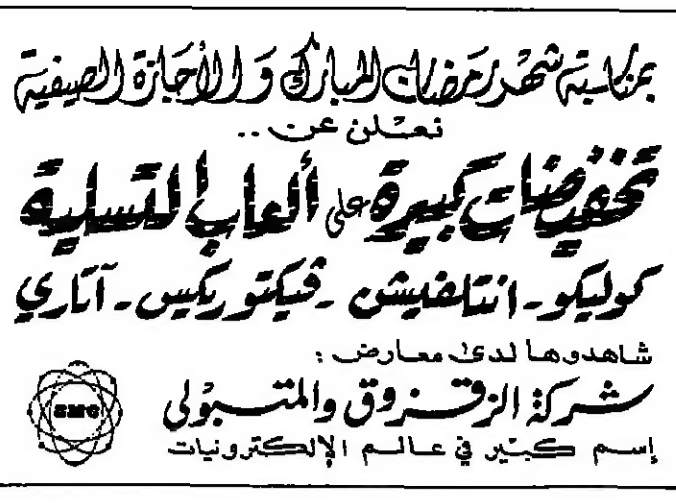 بمناسبة شهر رمضان المبارك و الأجازة الصيفية
نعلن عن ..
تخفيضات كبيرة على ألعاب التسلية
كوليكو - انتلفيشن - ڤيكتوريكيس - آتاري
شاهدوها لدى معارض :
شركة الزقزوق والمتبولى
SMC
إسم كبير في عالم الإلكترونيات